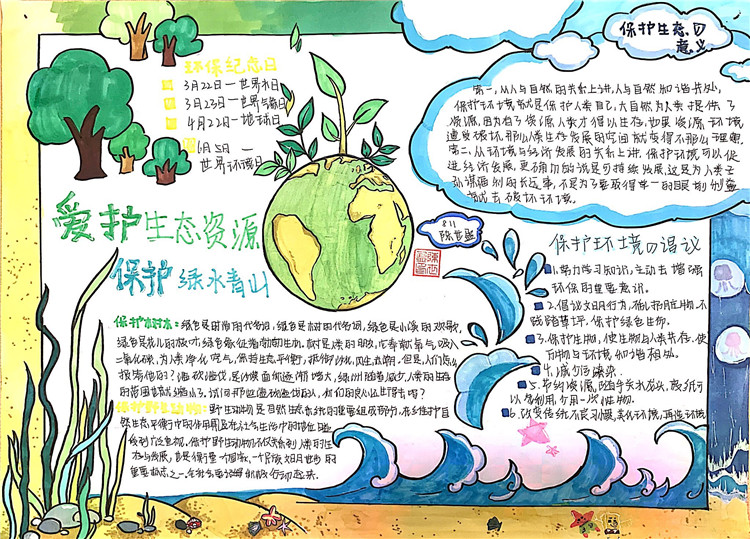 环保纪念日
3月22日—世界水日
3月23日—世界气象日
4月22日—地球日
6月5日—
世界环境日
爱护生态资源
保护绿水青山
保护生态的
意义
第一，从人与自然的关系上讲，人与自然和谐共处，
保护环境就是保护人类自己，大自然为人类提供了
资源，因为有了资源人类才得以生存，如果资源环境
遭受破坏，那么人类生存发展的空间就变得不那么理想。
第二，从环境与经济发展的关系上讲，保护环境可以促
进经济发展，更确切的说是可持续发展，这是为人类子
孙谋福利的长远事，不是为了要取得单一的眼前利益
就去破坏环境。
811
保护环境的倡议
1.努力学习知识，主动去增强
环保的重要意识。
2.倡议文明行为，确保脏物，不
践踏草坪，保护绿色生命。
3.保护生物，使生物与人类共存，使
万物与环境和谐相处。
4.减少污染。
5.节约资源，随手关水龙头，废纸可
以多利用，少用一次性物。
6.改变传统不良习惯，美化环境，再造环境
保护树木：绿色是时尚的代名词，绿色是树的代名词，绿色是小溪的欢歌，
绿色是花儿的微笑，绿色象征着勃勃生机，树是人类的朋友，它奉献氧气，吸入
二氧化碳，为人类净化空气，保持生态平衡，抵御沙化，风尘与潮，但是，人们怎么
报答他的？滥砍滥伐，是沙漠面积逐渐增大，绿洲随着减少，人类的生存
的范围越来越缩小了，
保护野生动物：野生动物是自然生态系统的重要组成部分，在维护自
然生态平衡
受到广泛重视，保护野生动物不仅关系到人类的生
存与发展，也是衡量一个国家，一个民族文明进步的
重要标志之一，